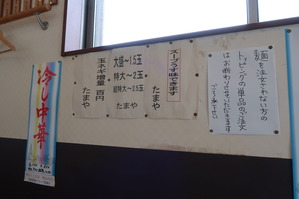 麺を注文されない方の
トッピングの単品のご注文
はお断りさせていただきます
ご了承下さい
スープうす味できます
たまや
大盛〜1.5玉
特大〜2玉
超特大〜2.5玉
たまや
玉ネギ増量 百円
たまや
冷し中華